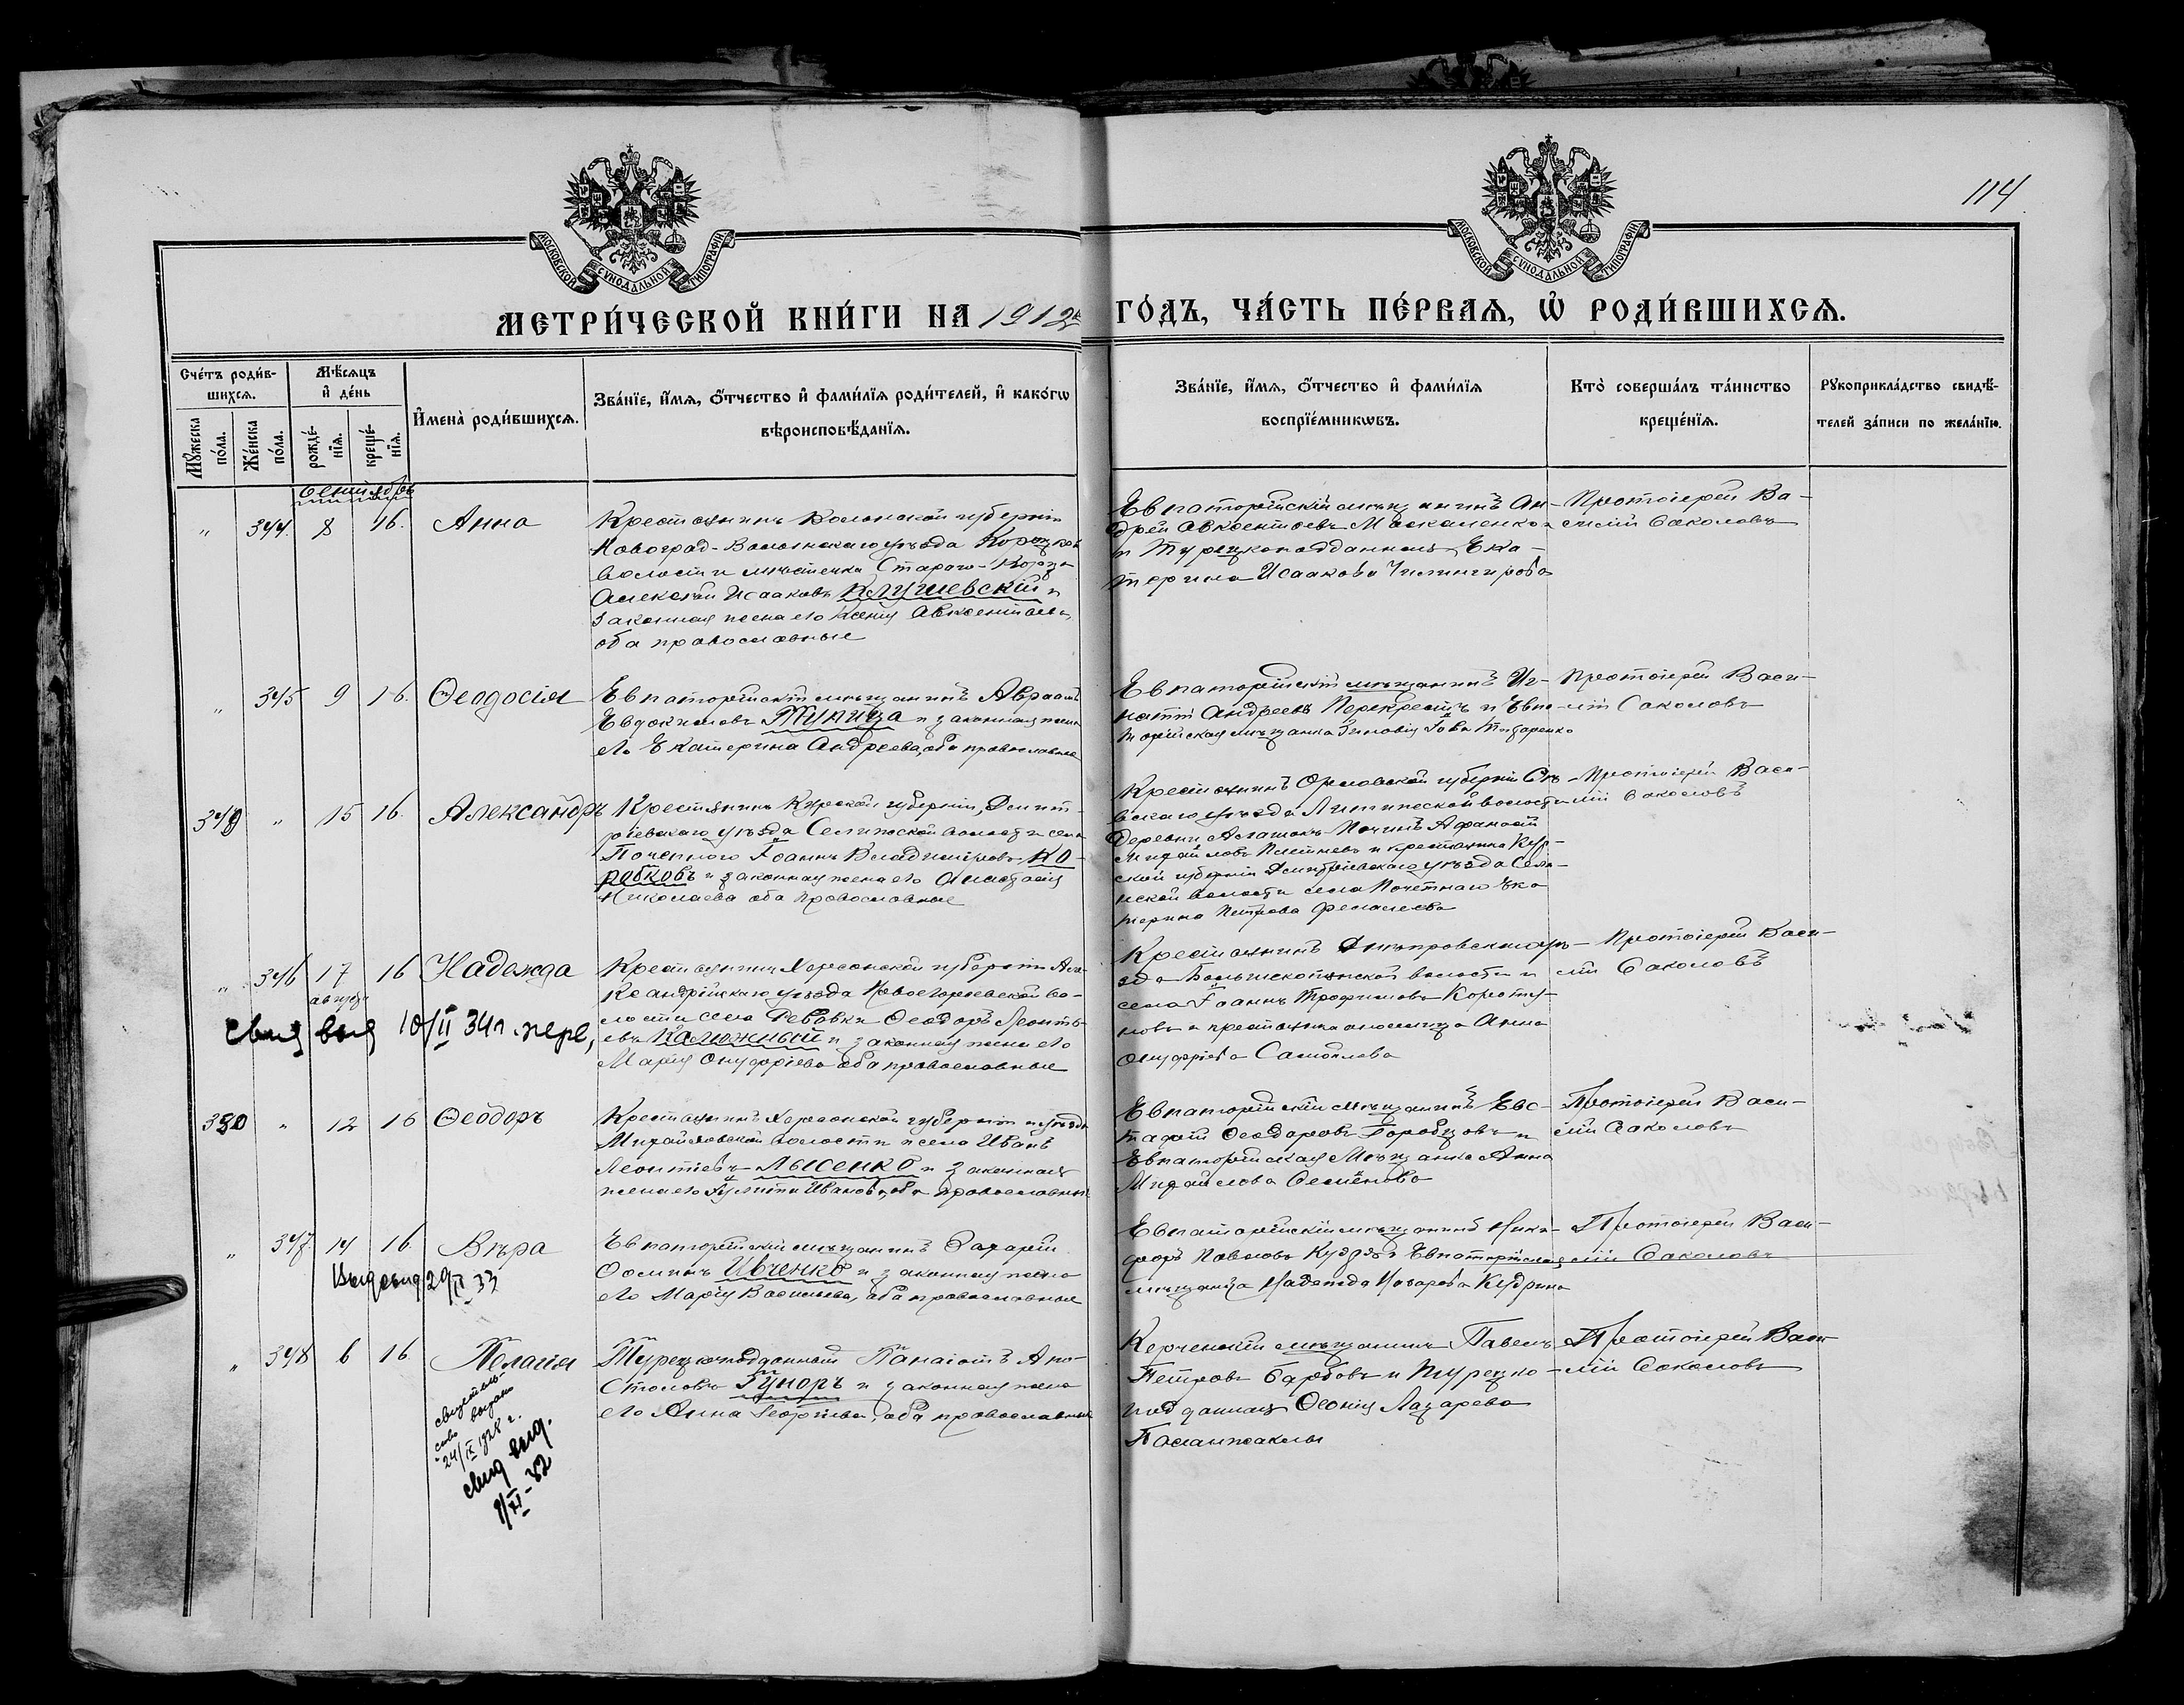 114
МОСКОВСКОЙ СѴНОДАЛЬНОЙ ТИПОГРАФІИ
МОСКОВСКОЙ СѴНОДАЛЬНОЙ ТИПОГРАФІИ
МЕТРИ́ЧЕСКОЙ КНИ́ГИ НА 1912й ГО́ДЪ, ЧА́СТЬ ПЕ́РВАѦ, Ѡ҆ РОДИ́ВШИХСѦ.
Сче́тъ роди́в-
шихсѧ.
Мꙋ́жеска по́ла.
Же́нска по́ла.
Мѣ́сѧцъ
и҆ де́нь
рожде́-
нїѧ.
креще́-
нїѧ.
И҆мена̀ роди́вшихсѧ.
Зва́нїе, и҆́мѧ, ѻ҆́тчество и҆ фами́лїѧ роди́телей, и҆ како́гѡ
вѣроисповѣ́данїѧ.
Зва́нїе, и҆́мѧ, ѻ҆́тчество и҆ фами́лїѧ
воспрїе́мникѡвъ.
Кто̀ соверша́лъ та́инство
креще́нїѧ.
Рꙋкоприкла́дство свидѣ́-
телей за́писи по жела́нїю.
Сентябрь
" 344. 8 16. Анна
Крестьянинъ Волынской губерніи
Новоград-Волынскаго уѣзда Корецкой
волости мѣстечка Старого-Корца
Алексѣй Исааковъ Клушевскій и
законная жена его Ксенія Авксентіева,
оба православные
Евпаторійскій мѣщанинъ Ан-
дрей Авксентіевъ Москаленко
и Турецкоподданная Ека-
терина Исаакова Чилингирова
Протоіерей Ва-
силій Соколовъ
" 345 9 16. Ѳеодосія
Евпаторійскій мѣщанинъ Авраамъ
Евдокимовъ Тупица и законная жена
его Екатерина Андреева, оба православные
Евпаторійскій мѣщанинъ Иг-
натій Андреевъ Перекрестъ и Евпа-
торійская мѣщанка Зиновія Іова Титаренко
Протоіерей Васи-
лій Соколовъ
349 " 15 16. Александръ
Крестьянинъ Курской губерніи, Дмит-
ріевскаго уѣзда Селинской волости села
Поченного Іоаннъ Владиміровъ Ко-
робковъ и законная жена его Анастасія
Николаева оба православные
Крестьянинъ Орловской губерніи Сѣ-
вскаго уѣзда
Деревни Афанасій
Михайловъ и крестьянка Кур-
ской губерніи Дмитріевскаго уѣзда Сели-
нской волости села Ека-
терина Петрова
Протоіерей Васи-
лій Соколовъ
" 346 17 16 Надежда
августа
Крестьянинъ Херсонской губерніи Але-
ксандрійскаго уѣзда Новогеоргіевской во-
лости села Ревовки Ѳеодоръ Леонть-
евъ Калюжный и законная жена его
Марія Онуфріева оба православные
Крестьянинъ Днѣпровскаго уѣ-
зда волости и
села Іоаннъ Трофимовъ
и крестьянка Анна
Онуфріева Самойлова
Протоіерей Васи-
лій Соколовъ
свид выд 10/II 34г.
350 " 12 16 Ѳеодоръ
Крестьянинъ Херсонской губерніи и уѣзда
Михайловской волости и села Иванъ
Леонтіевъ Лысенко и законная
жена его Іулитта Иванова, оба православные
Евпаторійскій мѣщанинъ Евс-
тафій Ѳеодоровъ Горобцовъ и
Евпаторійская Мѣщанка Анна
Михайлова Семенова
Протоіерей Васи-
лій Соколовъ
" 347. 14 16. Вѣра
Евпаторійскій мѣщанинъ Захарій
Ѳоминъ Ивченко и законная жена
его Марія Васильева, оба православные
Евпаторійскій мѣщанинъ Ники-
форъ Павловъ и Евпаторійская
мѣщанка Надежда Назарова Кудрина
Протоіерей Васи-
лій Соколовъ
Выд свид 29/ 33
" 348 6 16. Пелагія
Турецкоподданный Панаіотъ Апо-
столовъ и законная жена
его Анна Георгіева, оба православные
Керченскій мѣщанинъ Павелъ
Петровъ Барбовъ и Турецко-
подданная Ѳеонія Лазарева
Протоіерей Васи-
лій Соколовъ
свидетель-
ство выдано
24/IX 1928 г.
свид выд.
9/XI-32